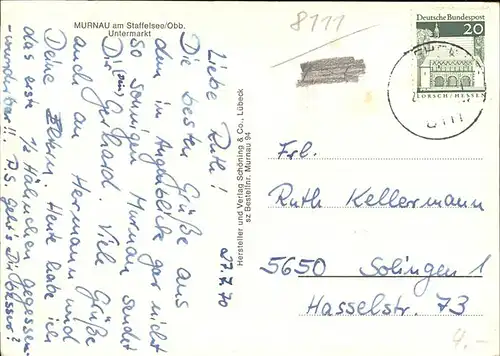 MURNAU am Staffelsee/Obb.
Untermarkt
27.7.70
Liebe Ruth!
Die besten Grüße aus
dem im Augenblick gar nicht
so sonnigen Murnau sendet
Dir (zum) Gerhard. Viele Grüße
auch an Hermann und
Deine Eltern. Heute habe ich
das erste 1/2 Hähnchen gegessen
- wunderbar!!! P.S. geht's Dir besser?
Hersteller und Verlag Schöning & Co., Lübeck
sz Bestellnr. Murnau 94
8111
Deutsche Bundespost
20
LORSCH/HESSEN
8111
Frl.
Ruth Kellermann
5650 Solingen 1
Hasselstr. 73
4.-